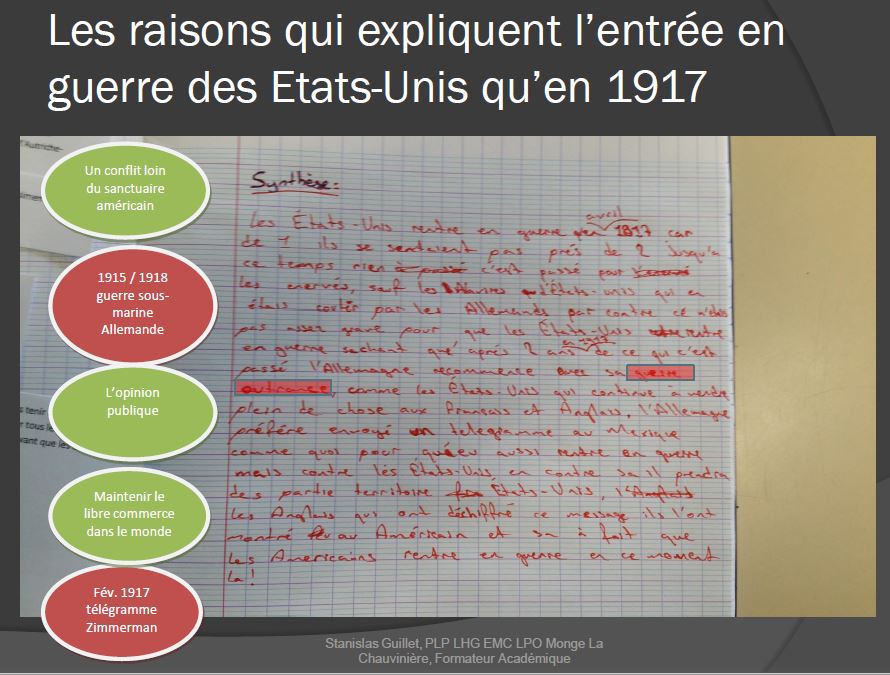 Les raisons qui expliquent l'entrée en
guerre des Etats-Unis qu'en 1917
Un conflit loin
du sanctuaire
américain
1915 / 1918
guerre sous-
marine
Allemande
L'opinion
publique
Maintenir le
libre commerce
dans le monde
Fév. 1917
télégramme
Zimmerman
Synthèse:
avril
Les États-Unis rentre en guerre en 1917 car
de 1 ils se sentaient pas prés de 2 Jusqu'a
ce temps rien c'est passé pour
les enervés, sauf les Navires d'États-unis qui en
étais par les Allemands par contre ce
pas assez grave pour que les États-Unis rentre
en 1917
en guerre sachant qué aprés 2 ans de ce qui c'est
passé l'Allemagne recommence avec sa guerre
outirance, comme les États-Unis qui continue à vendre
plein de chose aux Francais et Anglais, l'Allemagne
préfére envoyé un telegramme au Mexique
comme quoi pour aussi rentre en guerre
mais contre les États-Unis, en contre sa il prendra
des partie territoire États-Unis, l'Anglais
Les Anglais qui ont déchiffré ce message ils l'ont
montré au Américain et sa à fait que
les Americains rentre en guerre en ce moment
la!
Stanislas Guillet, PLP LHG EMC LPO Monge La
Chauvinière, Formateur Académique